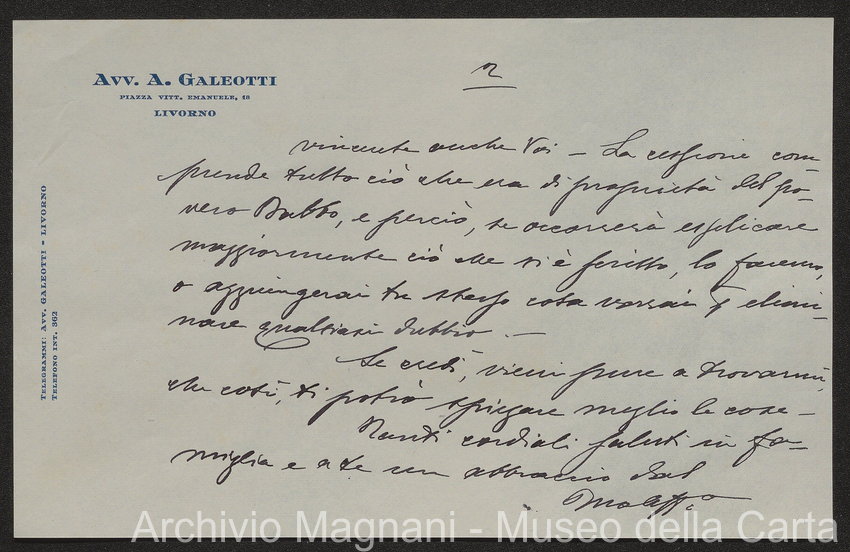 AVV. A. GALEOTTI
PIAZZA VITT. EMANUELE, 18
LIVORNO
TELEGRAMMI: AVV. GALEOTTI - LIVORNO
TELEFONO INT. 362
2
vincente anche Voi - La cessione com
prende tutto ciò che era di proprietà del po-
vero Babbo, e perciò, se occorrerà esplicare
maggiormente ciò che si è scritto, lo faremo,
o aggiungerai tu stesso cosa vorrai p elimi-
nare qualsiasi dubbio. -
Se credi, vieni pure a trovarmi,
che così, ti potrò spiegare meglio le cose -
Tanti cordiali saluti in fa-
miglia e a te un abbraccio dal
Archivio Magnani - Museo della Carta